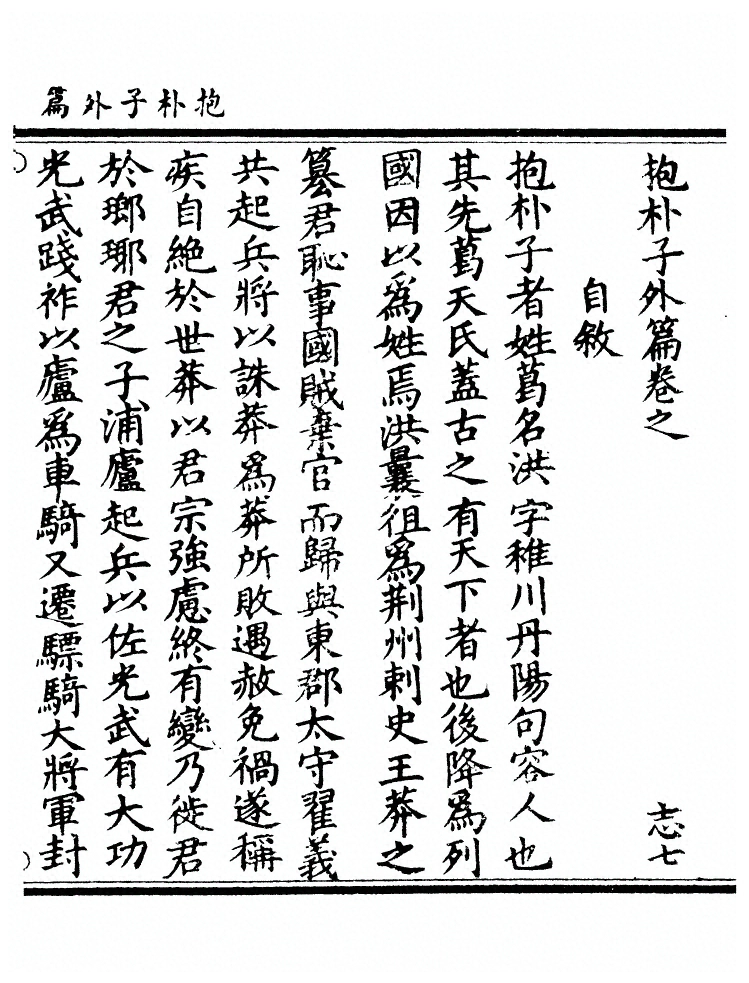 抱朴子外篇
抱朴子外篇卷之　志七
自敘
抱朴子者姓葛名洪字稚川丹陽句容人也
其先葛天氏蓋古之有天下者也後降爲列
國因以爲姓焉洪曩徂爲荆州刺史王莽之
簒君恥事國賊棄官而歸與東郡太守翟義
共起兵將以誅莽爲莽所敗遇赦免禍遂稱
疾自絶於世莽以君宗強慮終有變乃徙君
於瑯琊君之子浦廬起兵以佐光武有大功
光武踐祚以廬爲車騎又遷驃騎大將軍封